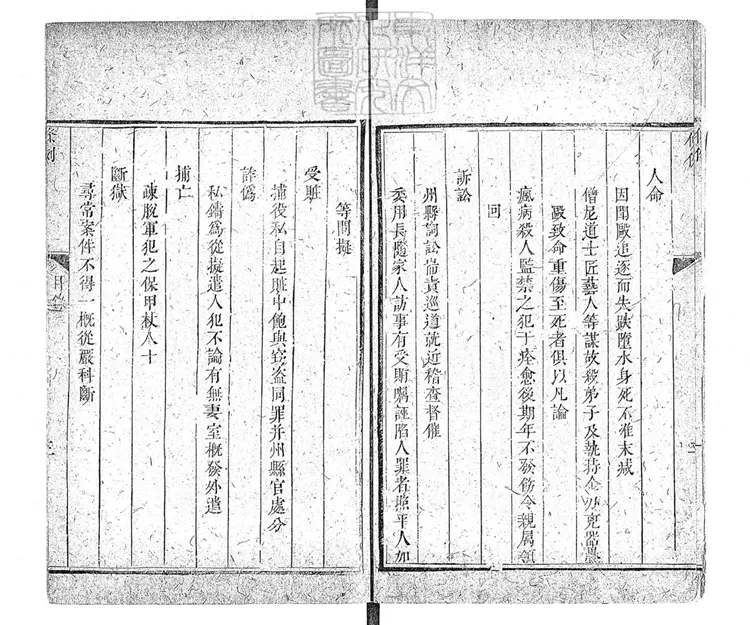 人命
因鬭毆追逐而失跌墮水身死不准末減
僧尼道士匠藝人等謀故殺弟子及執持金刃兇器
毆致命重傷至死者俱以凡論
瘋病殺人監禁之犯于痊愈後期年不發飭令親屬領
回
訴訟
州縣詞訟耑責巡道就近稽查督催
委用長隨家人訪事有受賄囑誣陷人罪者照平人加
等問擬
受贓
捕役私自起贓中飽與竊盜同罪并州縣官處分
詐僞
私鑄爲從擬遣人犯不論有無妻室槪發外遣
捕亡
疎脫軍犯之保甲杖八十
斷獄
尋常案件不得一槪從嚴科斷
條例
目錄